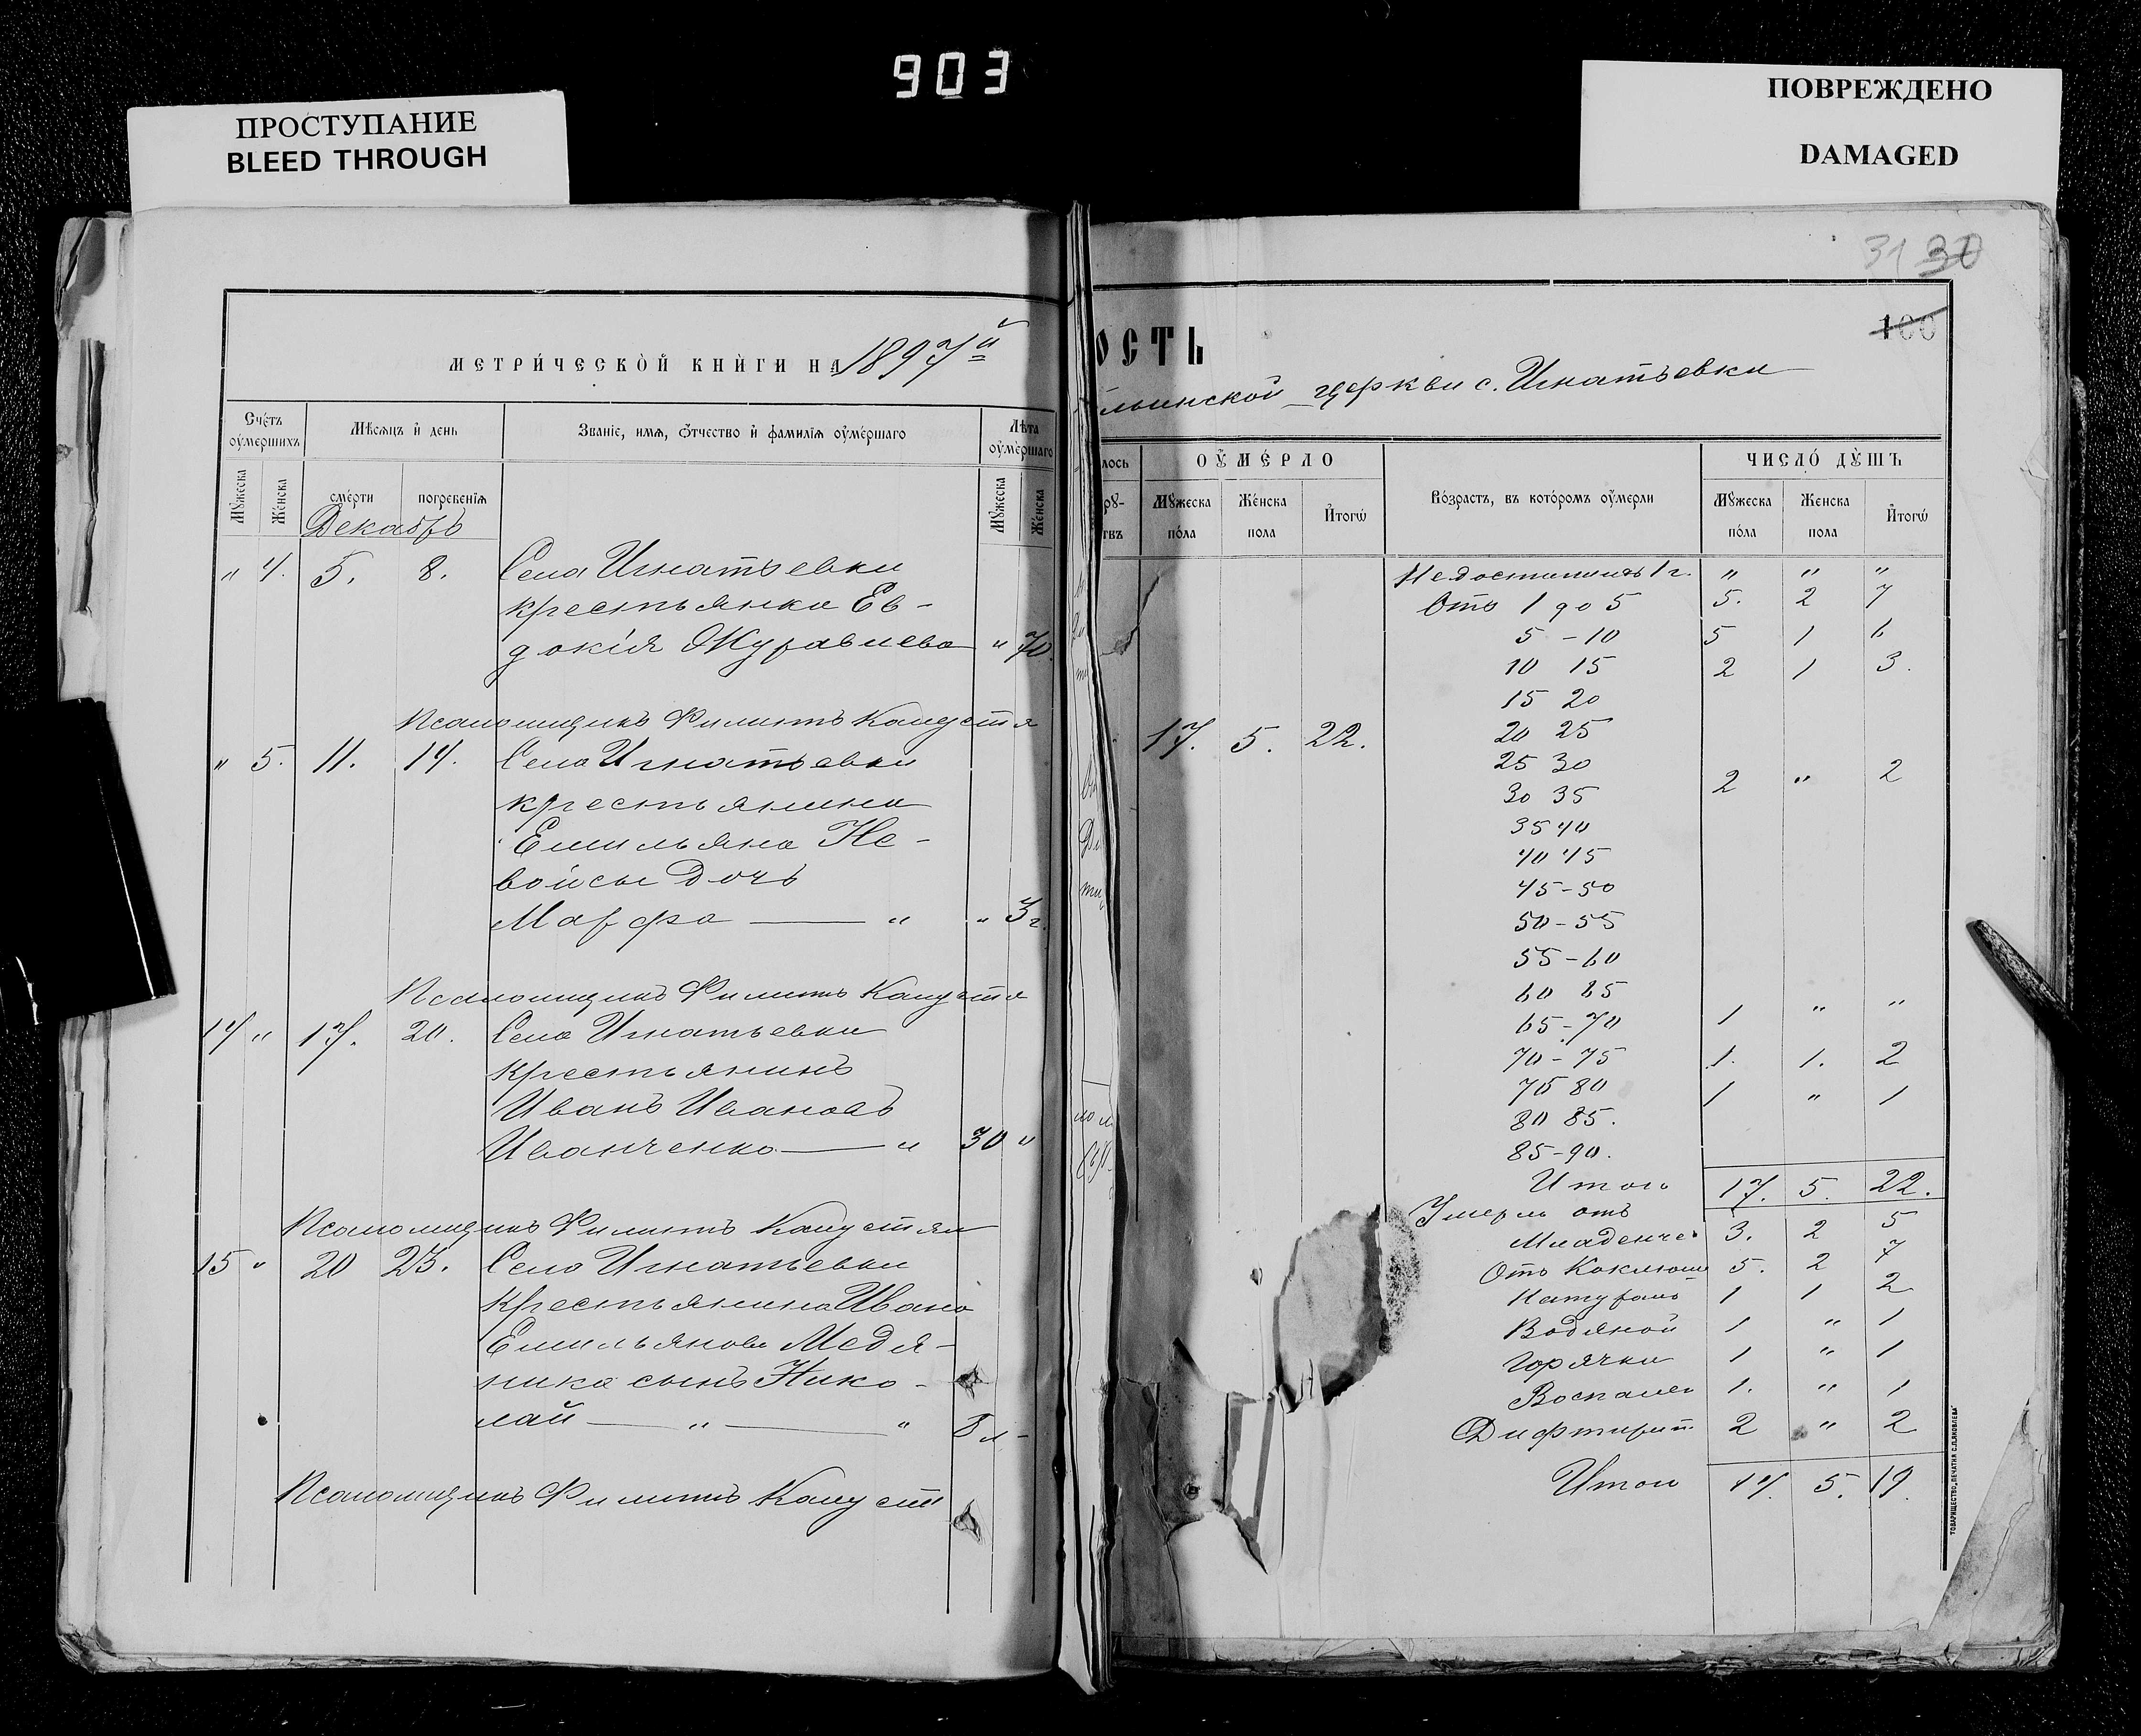 903
ПРОСТУПАНИЕ
BLEED THROUGH
ПОВРЕЖДЕНО
DAMAGED
метри́ческой кни́ги на 1897й
Сче́тъ оу҆мершихъ
Мѣсяцъ и҆ день
Званіе, имѧ, ѻ҆тчество и҆ фамиліѧ оу҆ме́ршаго
Лѣта оу҆ме́ршаго
Мꙋжеска
Же́нска
сме́рти
погребеніѧ
Мꙋжеска
Же́нска
Декабрь
" 4. 5. 8. Села Игнатьевки
крестьянка Ев-
докія Журавлева " 70.
Псаломщикъ Филиппъ Капустя
" 5. 11. 14. Села Игнатьевки
крестьянина
Емильяна Не-
войсы дочь
Марфа — " " 3 г.
Псаломщикъ Филиппъ Капустя
14 " 17. 20. Села Игнатьевки
крестьянинъ
Иванъ Ивановъ
Иванченко — " 30 "
Псаломщикъ Филиппъ Капустян
15 " 20 23. Села Игнатьевки
Крестьянина Ивана
Емильянова Медя-
ника сынъ Нико-
лай — " — " 8 л -
Псаломщикъ Филиппъ Капуст
31 30
100
ость
льинской церкви с. Игнатьевки
лось
ОУ҆МЕ́РЛО
Во́зрастъ, въ кото́ромъ оу҆мерли
ЧИСЛО́ ДꙊШЪ
рꙋ-
твъ
Мꙋжеска по́ла
Же́нска пола
И҆того̀
Мꙋжеска по́ла
Женска пола
И҆того̀
Недостигшихъ 1 г. " " "
Отъ 1 до 5 5. 2 7
5 - 10 5 1 6
10 15 2 1 3.
15 20
17. 5. 22. 20 25
25 30
30 35 2 " 2
35 40
40 45
45 - 50
50 - 55
55 - 60
60 65
65 - 70 1 " "
70 - 75 1. 1. 2
75 80 1 " 1
80 85.
85 - 90.
Итого 17. 5. 22.
Умерли отъ
Младенче 3. 2 5
Отъ Коклюш 5. 2 7
Натураль 1 1 2
Водяной 1 " 1
Горячки 1 " 1
Воспален 1. " 1
Дифтерит 2 " 2
Итого 14. 5. 19.
ТОВАРИЩЕСТВО „ПЕЧАТНЯ С.П.ЯКОВЛЕВА"